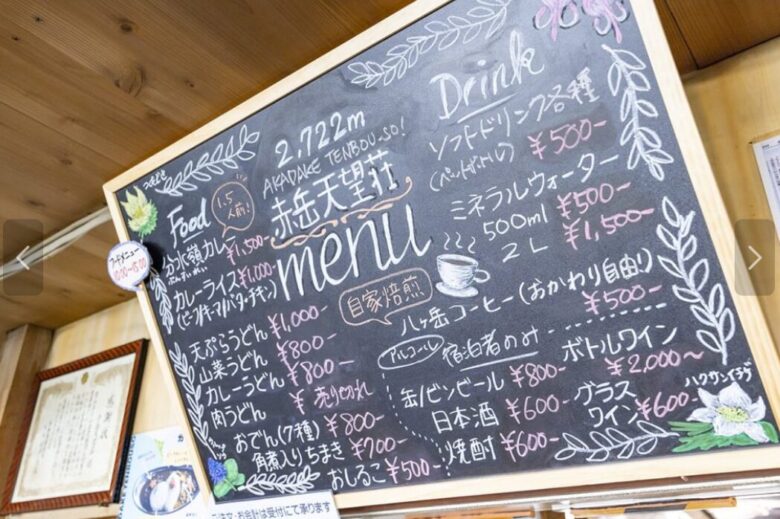 2,722m
AKADAKE TENBOU-SO!
赤岳天望荘
menu
Food
1.5人前!
分水嶺カレー ¥1,500-
ぶんすいれい
カレーライス ¥1,000-
(ビーフ/キーマ/バターチキン)
天ぷらうどん ¥1,000-
山菜うどん ¥800-
カレーうどん ¥800-
肉うどん ¥売りきれ
おでん(7種) ¥800-
角煮入りちまき ¥700-
おしるこ ¥500-
フードメニュー
10:00〜15:00
Drink
ソフトドリンク各種
(ペットボトル) ¥500-
ミネラルウォーター
500ml ¥500-
2L ¥1,500-
自家焙煎
八ヶ岳コーヒー(おかわり自由)
¥500-
アルコール 宿泊者のみ
缶/ビンビール ¥800-
日本酒 ¥600-
焼酎 ¥600-
ボトルワイン
¥2,000〜
グラスワイン ¥600-
ハクサンイチゲ
感謝状
ご注文・お会計は受付にて承ります